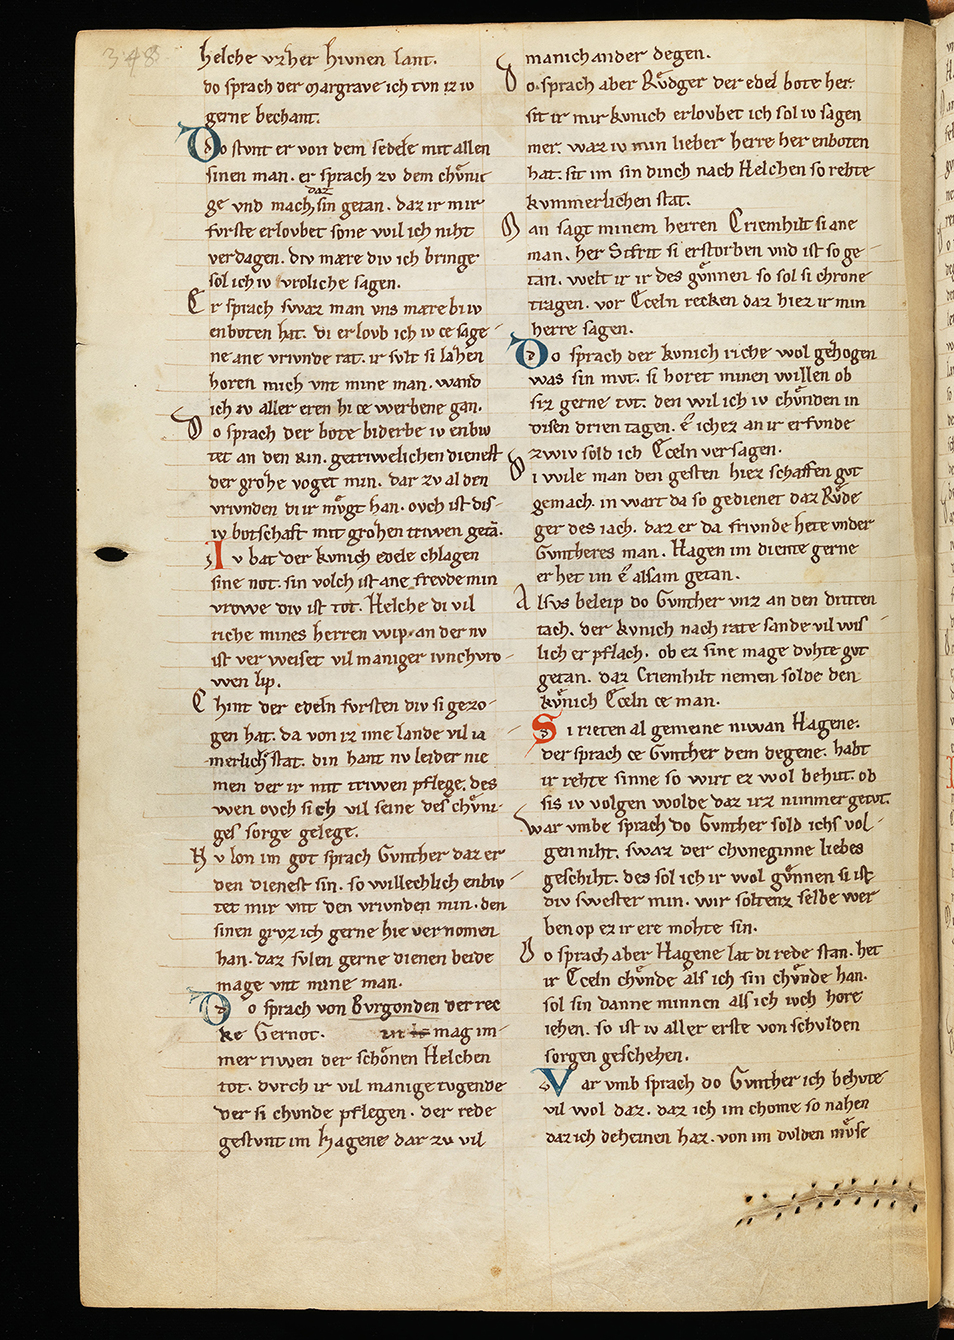 348
helche vz her hivnen lant.
do sprach der margrave ich tvn iz iv
gerne bechant.
Do stvnt er von dem sedele mit allen
sinen man. er sprach zv dem chvͦnic
ge vnd mach daz sin getan. daz ir mir
fvrste erlovbet sone wil ich niht
verdagen. div mære div ich bringe
sol ich iv vroliche sagen.
Er sprach swaz man vns mære bi iv
enboten hat. di erlovb ich iv ce sage
ne ane vrivnde rat. ir svlt si lazhen
horen mich vnt mine man. wand
ich iv aller eren hi ce werbene gan.
Do sprach der bote biderbe iv enbiv
tet an den Rin. getriwelichen dienest
der grozhe voget min. dar zv al den
vrivnden di ir mvͦgt han. ovch ist dis
iv botschaft mit grozhen triwen getā.
Iv bat der kvnich edele chlagen
sine not. sin volch ist ane frevde min
vrowe div ist tot. Helche di vil
riche mines herren wip. an der nv
ist verweiset vil maniger ivnchvro
wen lip.
Chint der edeln fvrsten div si gezo
gen hat. da von iz ime lande vil ia
merlich stat. din hant nv leider nie
men der ir mit triwen pflege. des
wen ovch sich vil seine des chvͦni
ges sorge gelege.
Nv lon im got sprach Gvnther daz er
den dienest sin. so willechlich enbiv
tet mir vnt den vrivnden min. den
sinen grvz ich gerne hie vernomen
han. daz svlen gerne dienen beide
mage vnt mine man.
Do sprach von Bvrgonden der rec
ke Gernot. mag im
mer riwen der schoͤnen Helchen
tot. dvrch ir vil manige tvgende
der si chvnde pflegen. der rede
gestvnt im Hagene dar zv vil
manich ander degen.
Do sprach aber Rvͦdger der edel bote her.
sit ir mir kvnich erlovbet ich sol iv sagen
mer. waz iv min lieber herre her enboten
hat. sit im sin dinch nach Helchen so rehte
kvmmerlichen stat.
Man sagt minem herren Criemhilt si ane
man. her Sifrit si erstorben vnd ist so ge
tan. welt ir ir des gvͦnnen so sol si chrone
tragen. vor Eceln recken daz hiez ir min
herre sagen.
Do sprach der kvnich riche wol gezhogen
was sin mvt. si horet minen willen ob
siz gerne tvt. den wil ich iv chvͦnden in
disen drien tagen. ê ichez an ir erfvnde
zwiv sold ich Eceln versagen.
Di wile man den gesten hiez schaffen gvt
gemach. in wart da so gedienet daz Rvͦde
ger des iach. daz er da frivnde hete vnder
Gvntheres man. Hagen im diente gerne
er het im ê alsam getan.
Alsvs beleip do Gvnther vnz an den dritten
tach. der kvnich nach rate sande vil wis
lich er pflach. ob ez sine mage dvhte gvt
getan. daz Criemhilt nemen solde den
kvͦnich Eceln ce man.
Si rieten al gemeine niwan Hagene.
der sprach ce Gvnther dem degene. habt
ir rehte sinne so wirt ez wol behvt. ob
sis iv volgen wolde daz irz nimmer getvt.
War vmbe sprach do Gvnther sold ichs vol
gen niht. swaz der chvneginne liebes
geschiht. des sol ich ir wol gvͦnnen si ist
div swester min. wir soltenz selbe wer
ben op ez ir ere mohte sin.
Do sprach aber Hagene lat di rede stan. het
ir Eceln chvͦnde als ich sin chvͦnde han.
sol sin danne minnen als ich ivch hore
iehen. so ist iv aller erste von schvlden
sorgen geschehen.
Var vmb sprach do Gvnther ich behvte
vil wol daz. daz ich im chome so nahen
daz ich deheinen haz. von im dvlden mvͦse